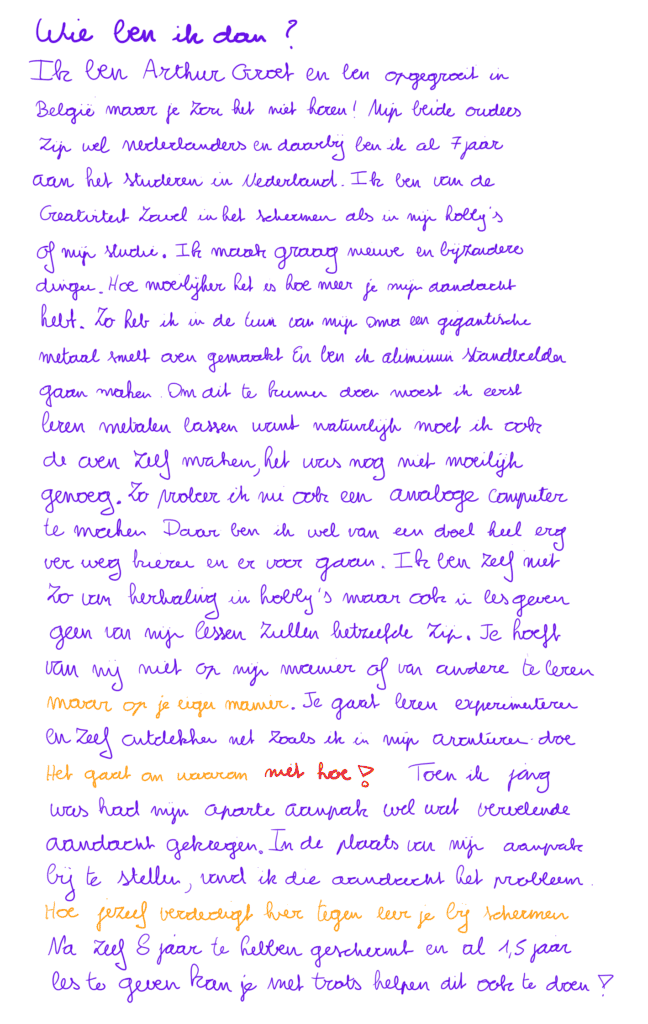 Wie ben ik dan?
Ik ben Arthur Groet en ben opgegroeit in
België maar je zou het niet horen! Mijn beide ouders
zijn wel nederlanders en daarbij ben ik al 7 jaar
aan het studeren in Nederland. Ik ben van de
Creativiteit zowel in het schermen als in mijn hobby's
of mijn studie. Ik maak graag nieuwe en bijzondere
dingen. Hoe moeilijker het is hoe meer je mijn aandacht
hebt. Zo heb ik in de tuin van mijn oma een gigantische
metaal smelt oven gemaakt En ben ik aliminium standbeelden
gaan maken. Om dit te kunnen doen moest ik eerst
leren metalen lassen want natuurlijk moet ik ook
de oven zelf maken, het was nog niet moeilijk
genoeg. Zo probeer ik nu ook een analoge computer
te maken Daar ben ik wel van een doel heel erg
ver weg kiezen en er voor gaan. Ik ben zelf niet
zo van herhaling in hobby's maar ook in les geven
geen van mijn lessen zullen hetzelfde zijn. Je hoeft
van mij niet op mijn manier of van andere te leren
maar op je eigen manier. Je gaat leren experimenteren
en zelf ontdekken net zoals ik in mijn avonturen doe
Het gaat om waarom niet hoe! Toen ik jong
was had mijn aparte aanpak wel wat vervelende
aandacht gekregen. In de plaats van mijn aanpak
bij te stellen, vond ik die aandacht het probleem.
Hoe jezelf verdedigt hier tegen leer je bij schermen
Na zelf 8 jaar te hebben geschermt en al 1,5 jaar
les te geven kan je met trots helpen dit ook te doen!